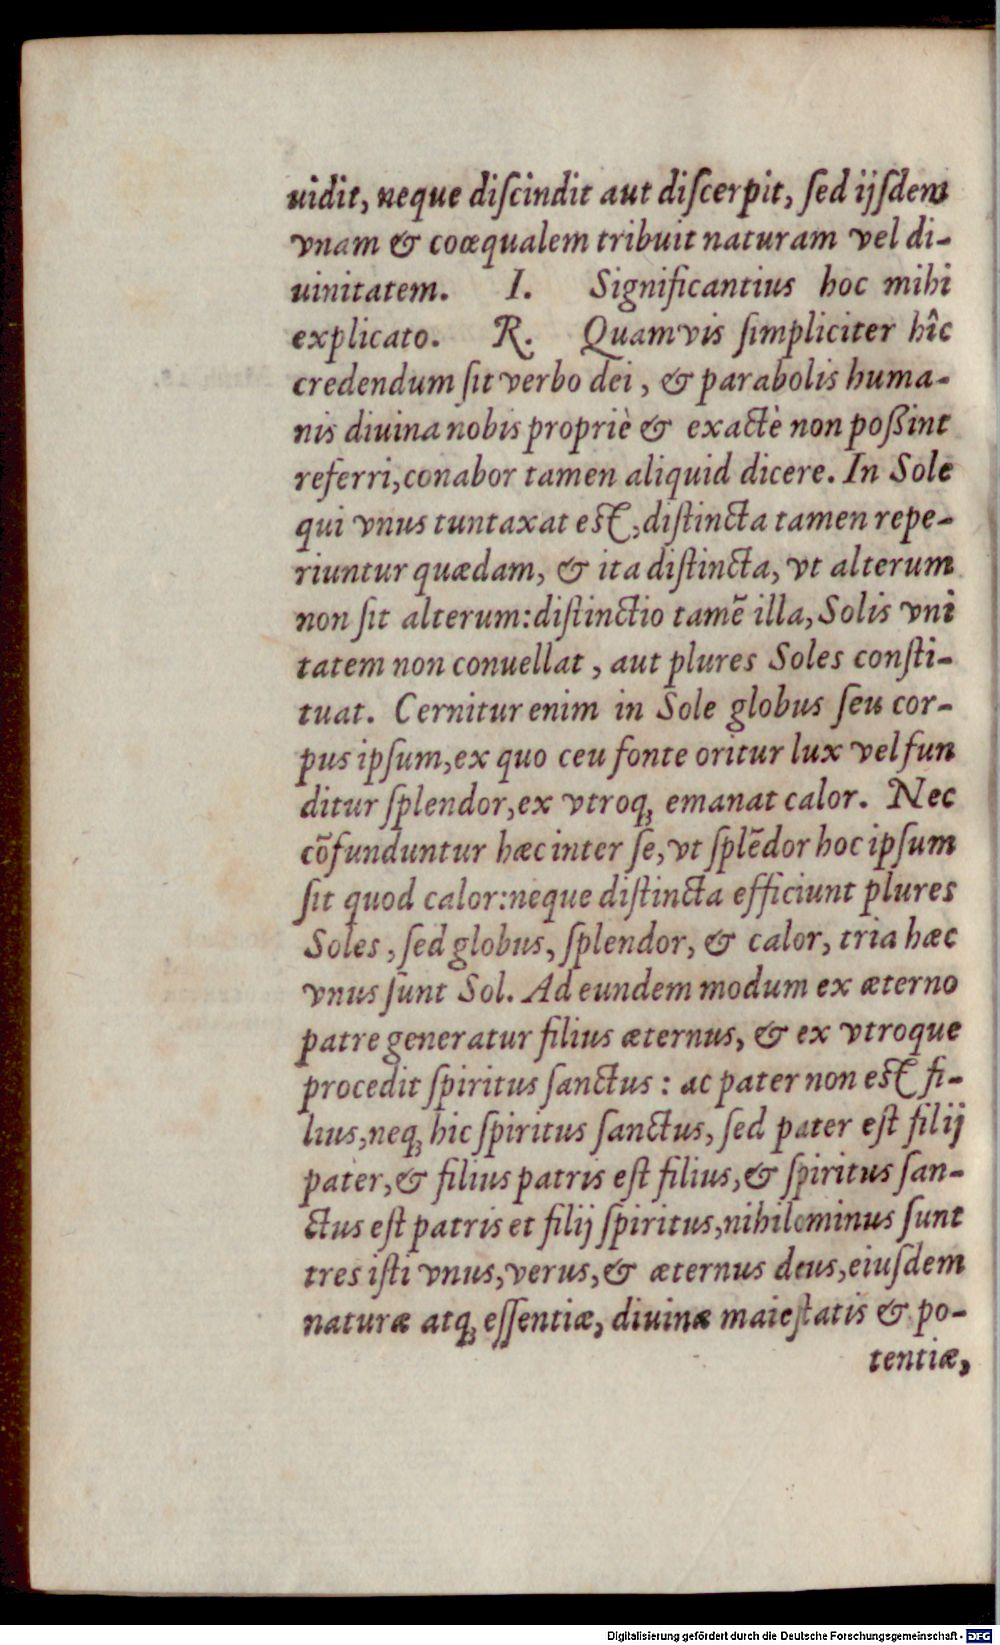 uidit, neque diſcindit aut diſcerpit, ſed ijſdem
vnam & coæqualem tribuit naturam vel di-
uinitatem. I. Significantius hoc mihi
explicato. R. Quamvis ſimpliciter hîc
credendum ſit verbo dei, & parabolis huma-
nis diuina nobis propriè & exactè non poßint
referri, conabor tamen aliquid dicere. In Sole
qui vnus tuntaxat est, diſtincta tamen repe-
riuntur quædam, & ita diſtincta, vt alterum
non ſit alterum: diſtinctio tamē illa, Solis vni
tatem non conuellat, aut plures Soles conſti-
tuat. Cernitur enim in Sole globus ſeu cor-
pus ipſum, ex quo ceu fonte oritur lux vel fun
ditur ſplendor, ex vtroq; emanat calor. Nec
cōfunduntur hæc inter ſe, vt ſplēdor hoc ipſum
ſit quod calor: neque diſtincta efficiunt plures
Soles, ſed globus, ſplendor, & calor, tria hæc
vnus ſunt Sol. Ad eundem modum ex æterno
patre generatur filius æternus, & ex vtroque
procedit ſpiritus ſanctus: ac pater non est fi-
lius, neq; hic ſpiritus ſanctus, ſed pater eſt filij
pater, & filius patris eſt filius, & ſpiritus ſan-
ctus eſt patris et filij ſpiritus, nihilominus ſunt
tres iſti vnus, verus, & æternus deus, eiuſdem
naturæ atq; eſſentiæ, diuinæ maieſtatis & po-
tentiæ,
Digitalisierung gefördert durch die Deutsche Forschungsgemeinschaft - DFG